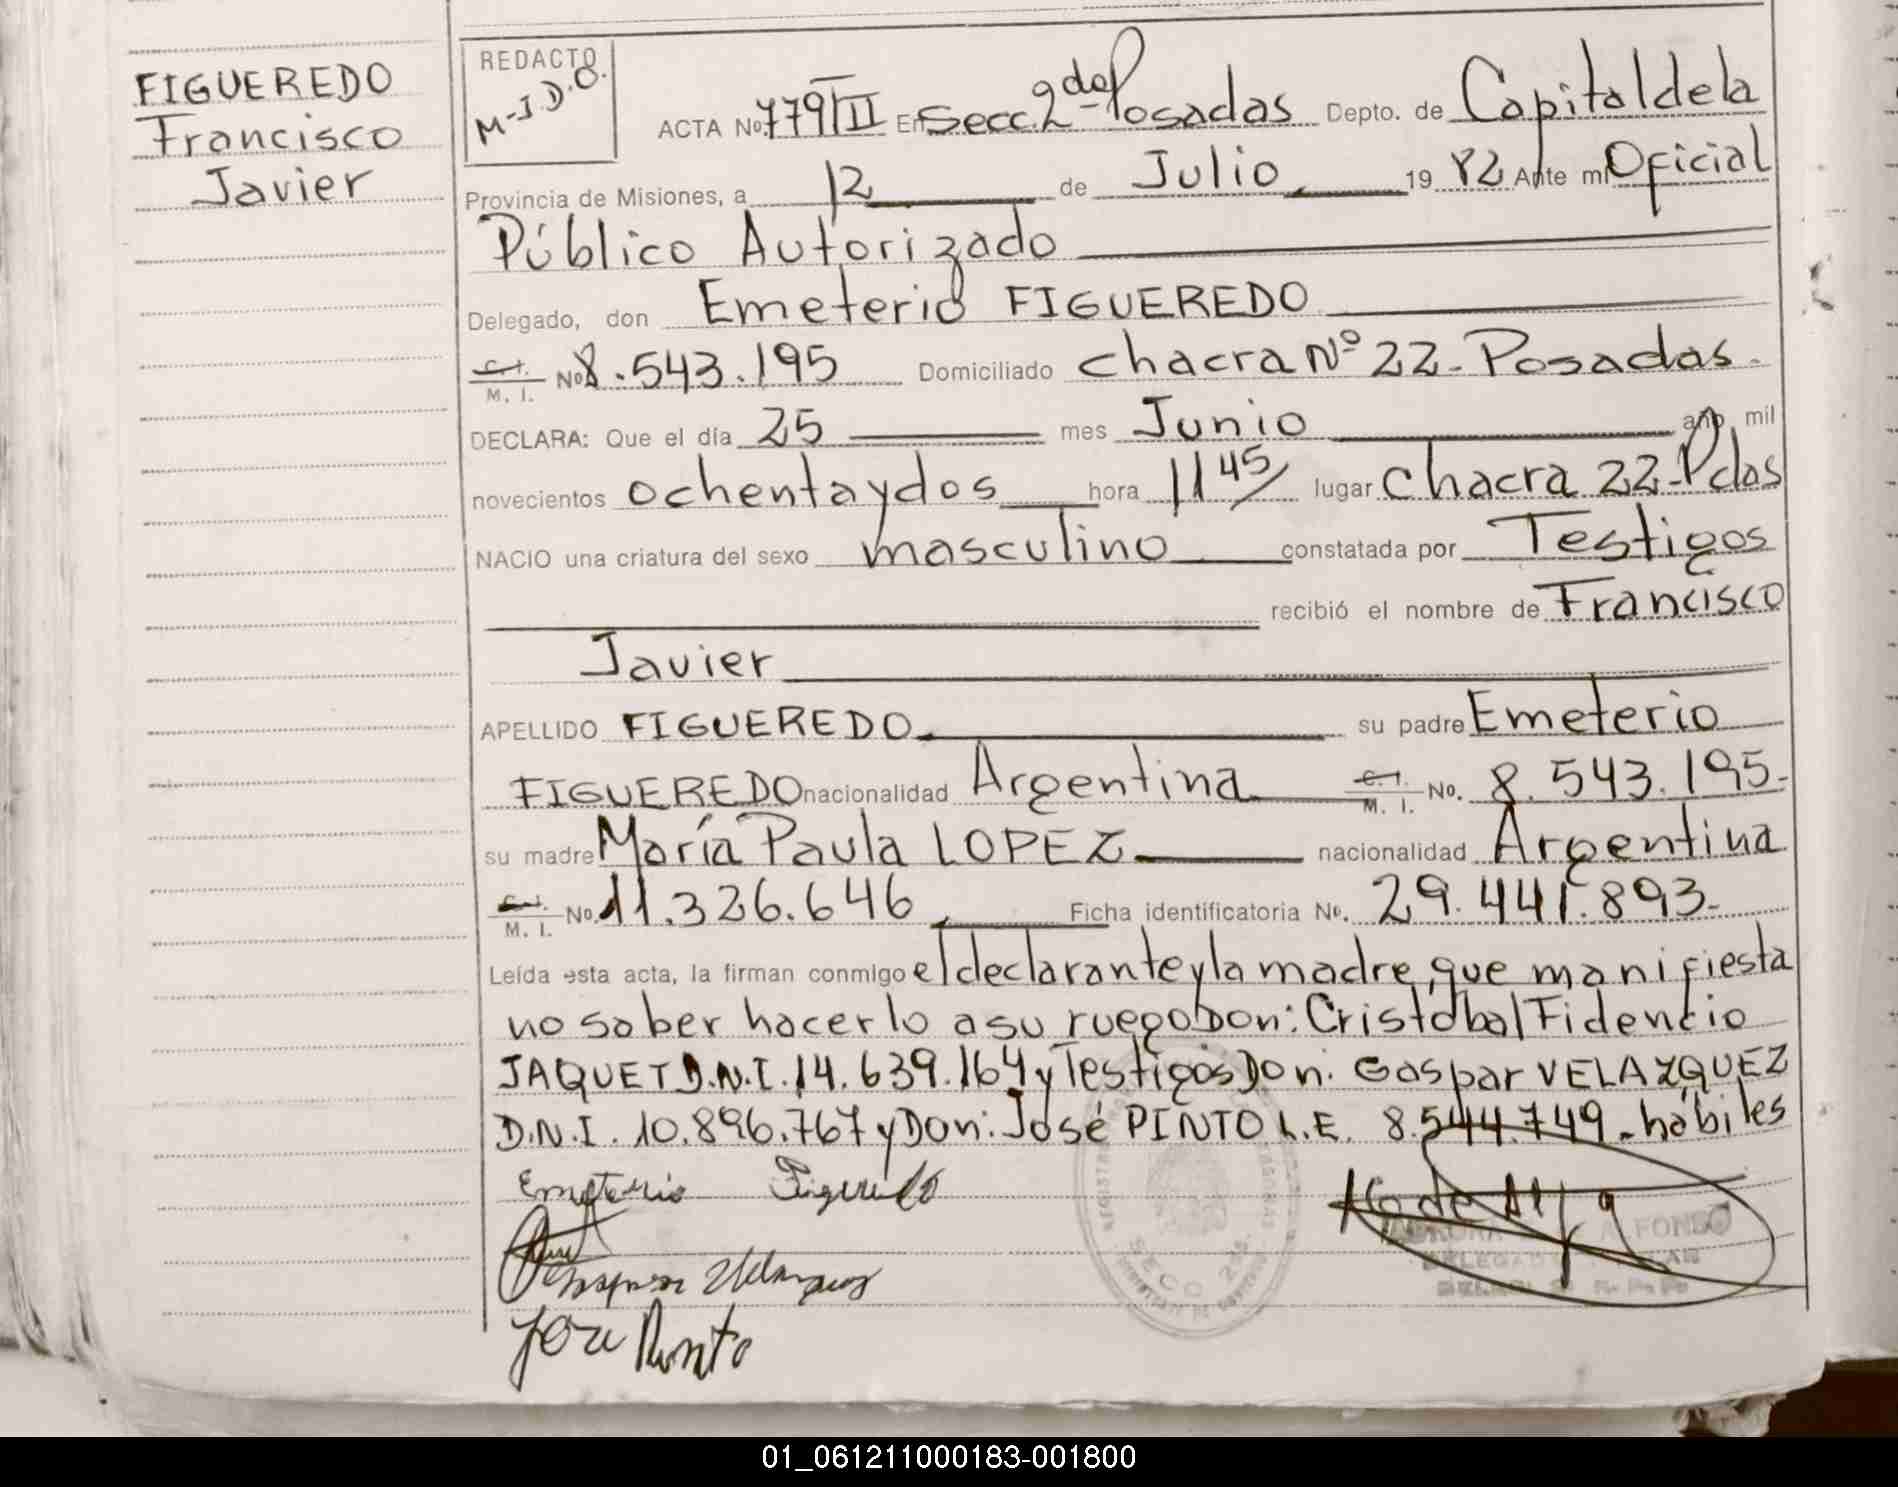 FIGUEREDO
Francisco
Javier
REDACTO
M-J D.O.
ACTA No. 779/II En Secc. 2da Posadas Depto. de Capital de la
Provincia de Misiones, a 12 de Julio 19 82 Ante mí Oficial
Público Autorizado
Delegado, don Emeterio FIGUEREDO
C.I. M. I. No 8.543.195 Domiciliado chacra Nº 22- Posadas-
DECLARA: Que el día 25 mes Junio año mil
novecientos ochenta y dos hora 11 45 lugar chacra 22-Pdas
NACIO una criatura del sexo masculino constatada por Testigos
recibió el nombre de Francisco
Javier
APELLIDO FIGUEREDO su padre Emeterio
FIGUEREDO nacionalidad Argentina C.I. M. I. No. 8.543.195-
su madre María Paula LOPEZ nacionalidad Argentina
C.I. M. I. No. 11.326.646 Ficha identificatoria No. 29.441.893-
Leída esta acta, la firman conmigo el declarante y la madre, que manifiesta
no saber hacerlo a su ruego Don: Cristóbal Fidencio
JAQUET D.N.I. 14.639.164 y Testigos Don: Gaspar VELAZQUEZ
D.N.I. 10.896.767 y Don: José PINTO L.E. 8.544.749- hábiles
Emeterio Figueredo
ALFONSO
SECC 2da
José Pinto
01_061211000183-001800